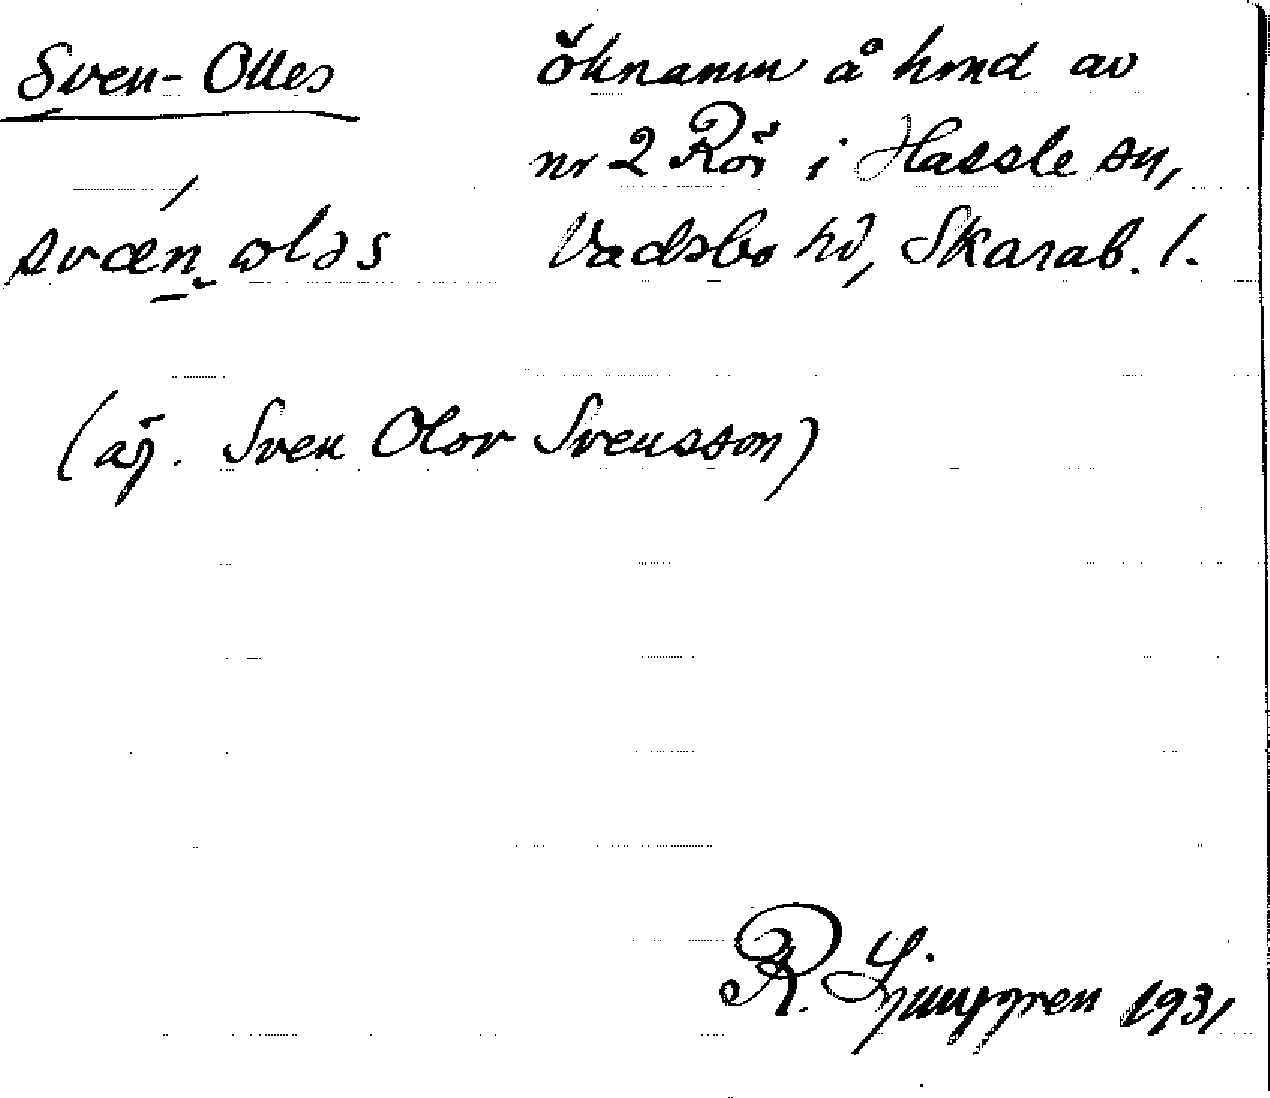 Sven-Olles öknamn å hmd av
nr 2 Rör i Hassle sn,
svæn ɷləs Vadsbo hd, Skarab. l.
(äg. Sven Olov Svensson)
R. Ljunggren 1931